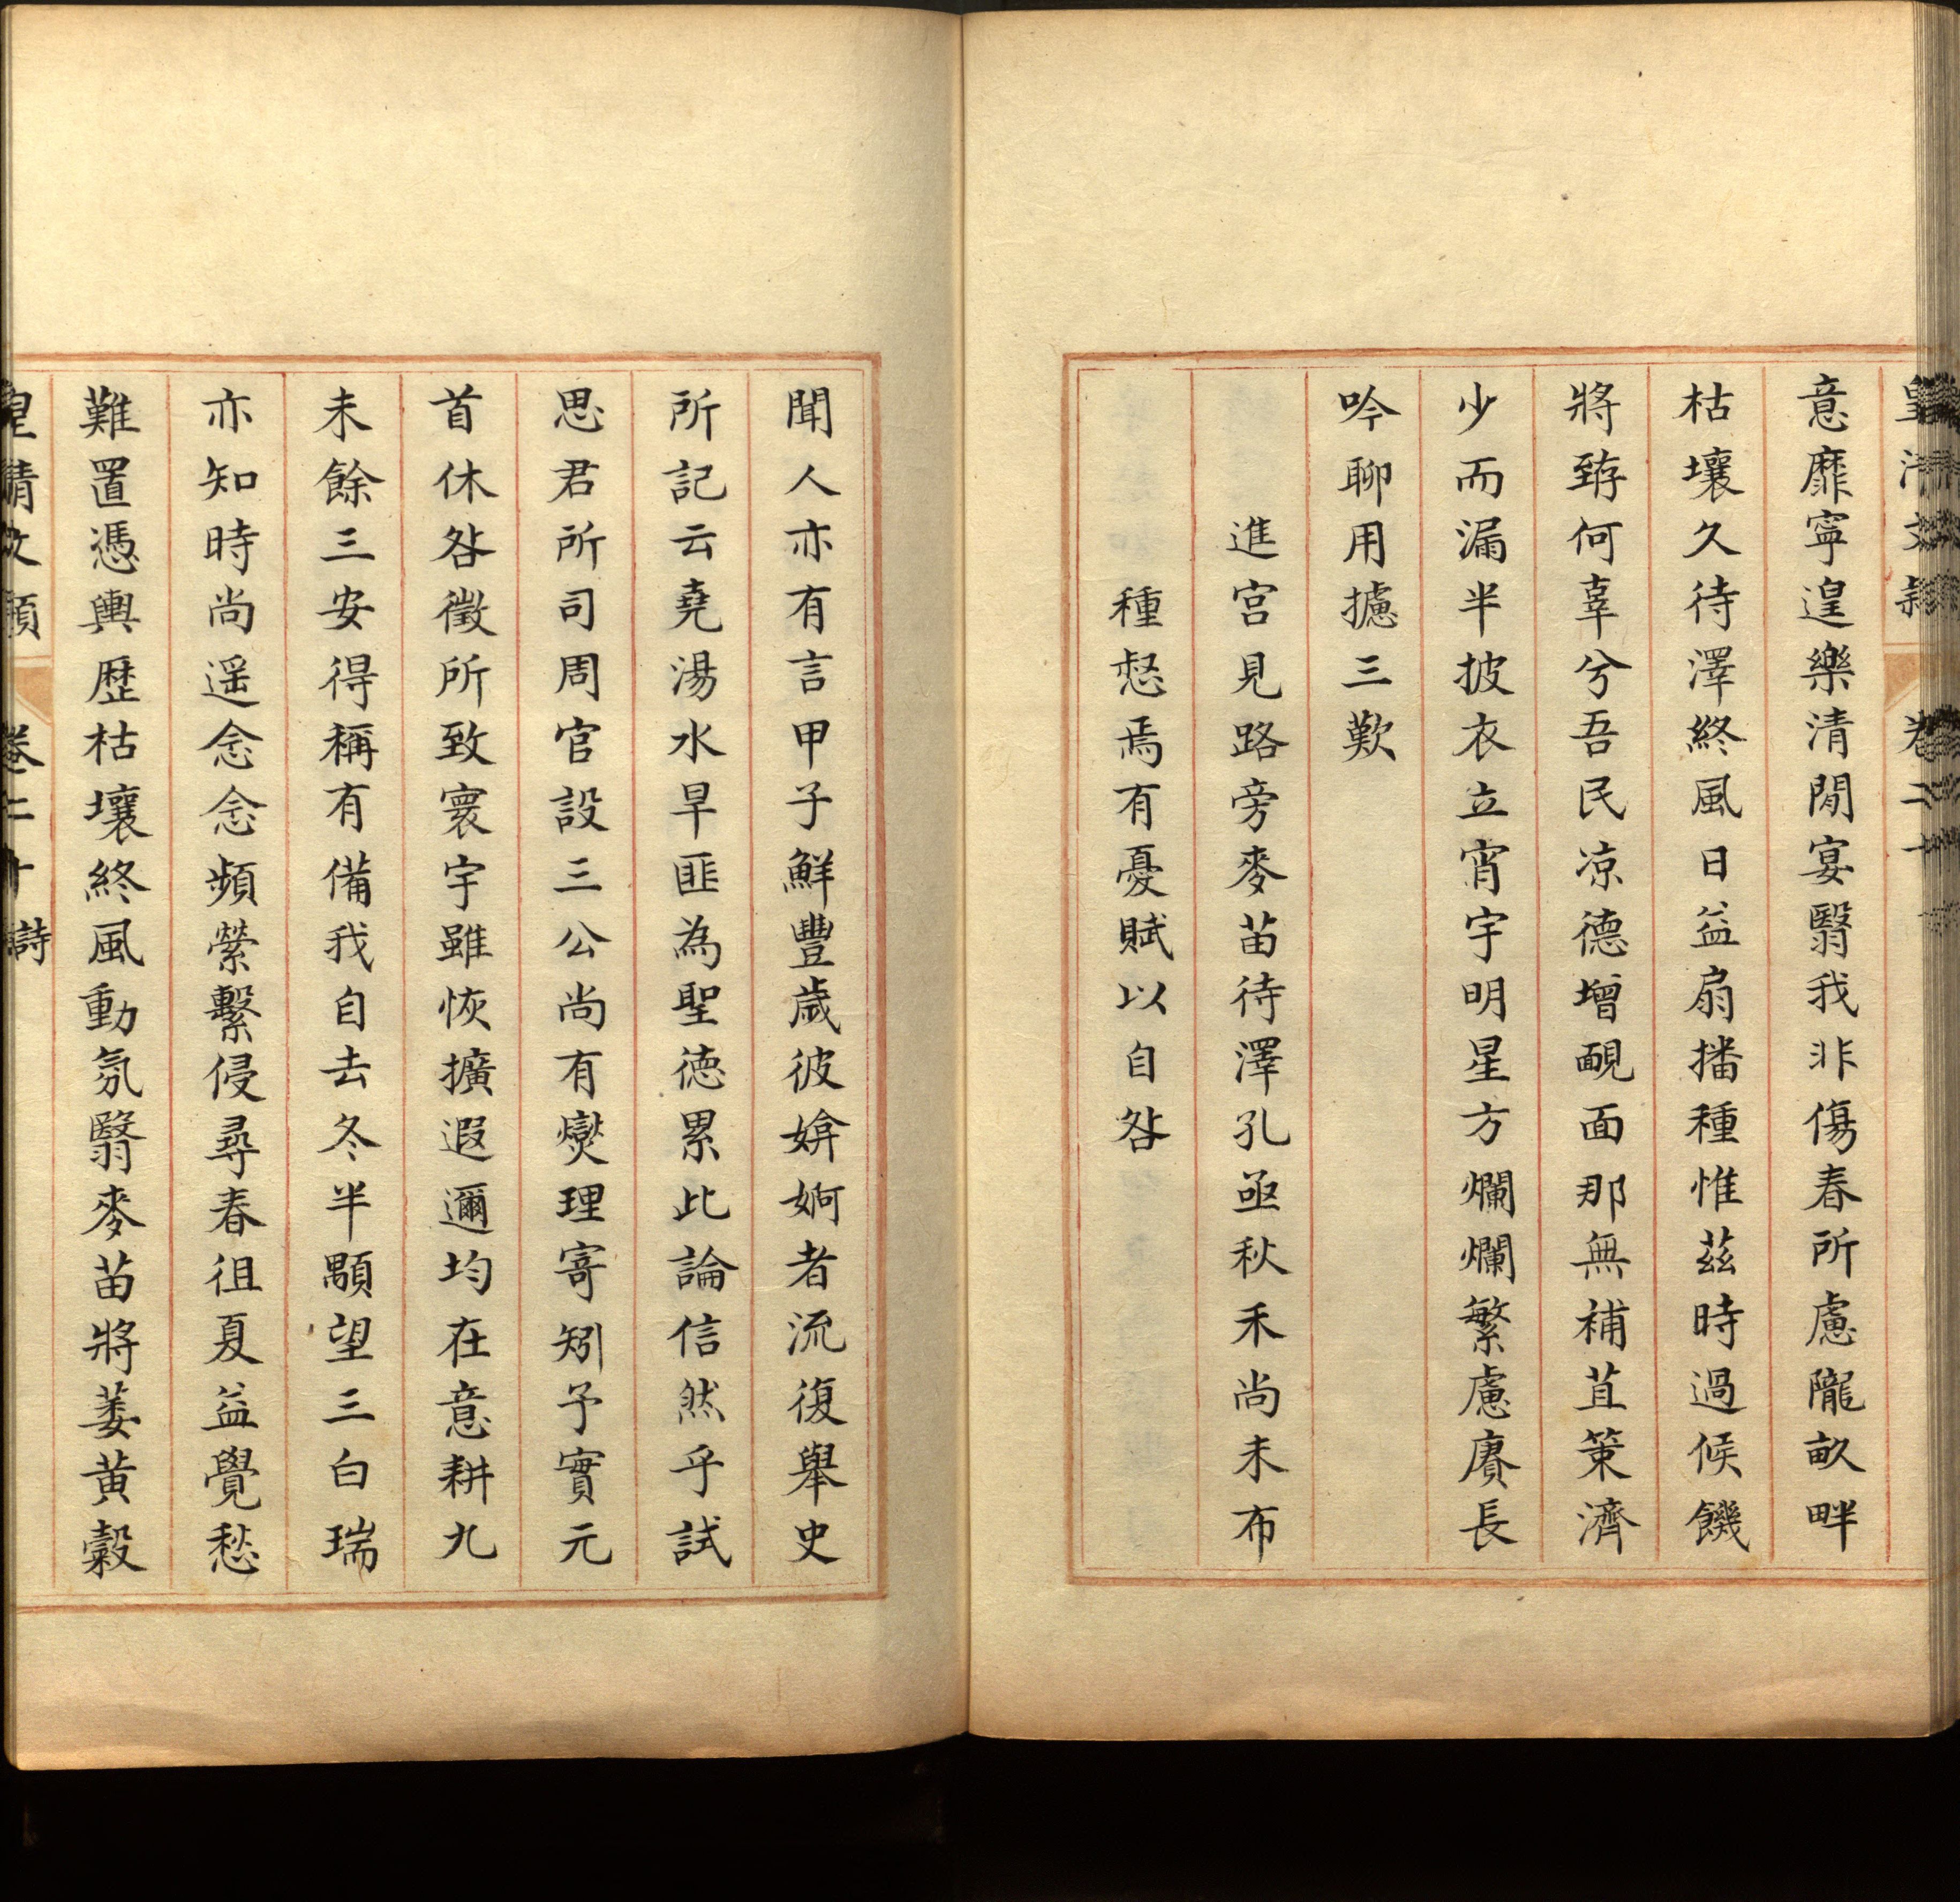 意靡寧遑樂清閒宴翳我非傷春所慮隴畝畔
枯壤久待澤終風日益扇播種惟茲時過候饑
將臻何辜兮吾民凉德增靦面那無補苴策濟
少而漏半披衣立宵宇明星方爛爛繁慮賡長
吟聊用攄三歎
進宮見路旁麥苗待澤孔亟秋禾尚未布
種惄焉有憂賦以自咎
聞人亦有言甲子鮮豐歲彼媕婀者流復舉史
所記云堯湯水旱匪為聖德累此論信然乎試
思君所司周官設三公尚有爕理寄矧予實元
首休咎徵所致寰宇雖恢擴遐邇均在意耕九
未餘三安得稱有備我自去冬半顒望三白瑞
亦知時尚遥念念頻縈繫侵尋春徂夏益覺愁
難置憑輿歷枯壤終風動氛翳麥苗將萎黃穀
皇清文穎 卷二十 詩